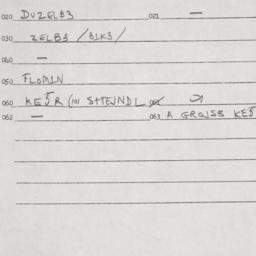 020 DUZELB3 021 —
030 ZELB3 /BIK3/
040 —
050 FLOMIN
060 KE5R (IN SHTEJNDL 061
062 — 063 A GROJS3 KE5